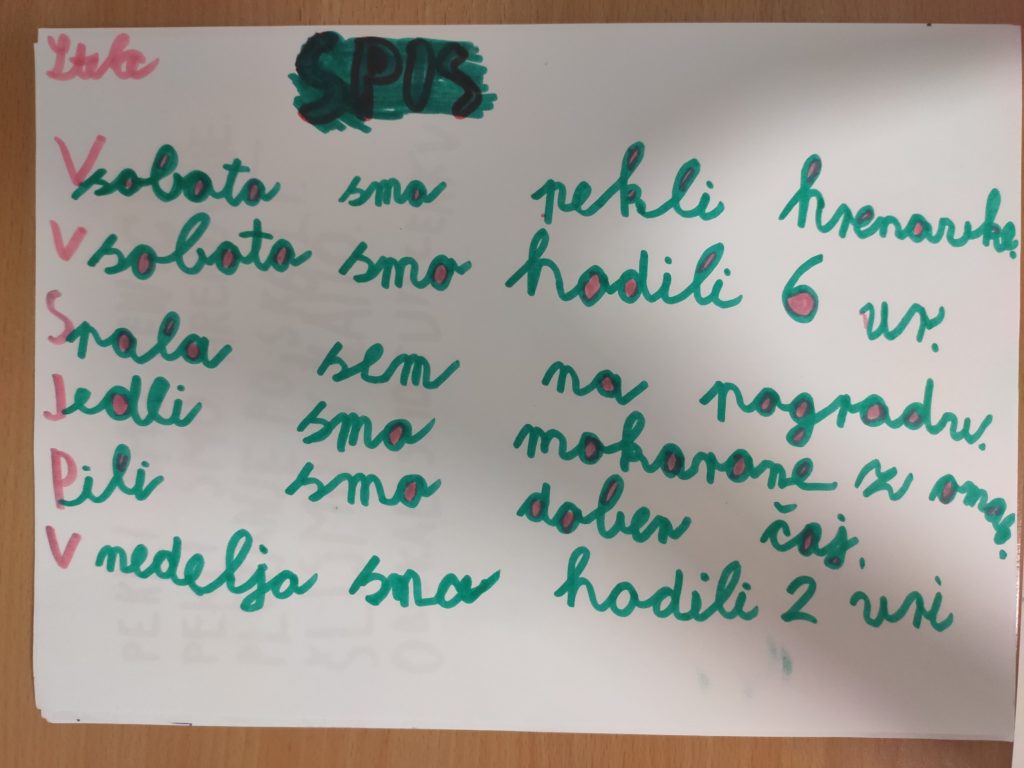 SPIS
V soboto smo pekli hrenovke.
V soboto smo hodili 6 ur.
Spala sem na pogradu.
Jedli smo makarone z
Pili smo dober čaj.
V nedeljo smo hodili 2 uri